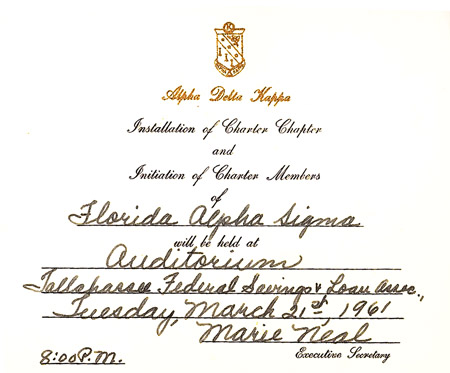 Alpha Delta Kappa
Installation of Charter Chapter
and
Initiation of Charter Members
of
Florida Alpha Sigma
will be held at
Auditorium
Tallahassee Federal Savings & Loan Assoc.,
Tuesday, March 21st, 1961
Marie Neal
8:00 P.M. Executive Secretary